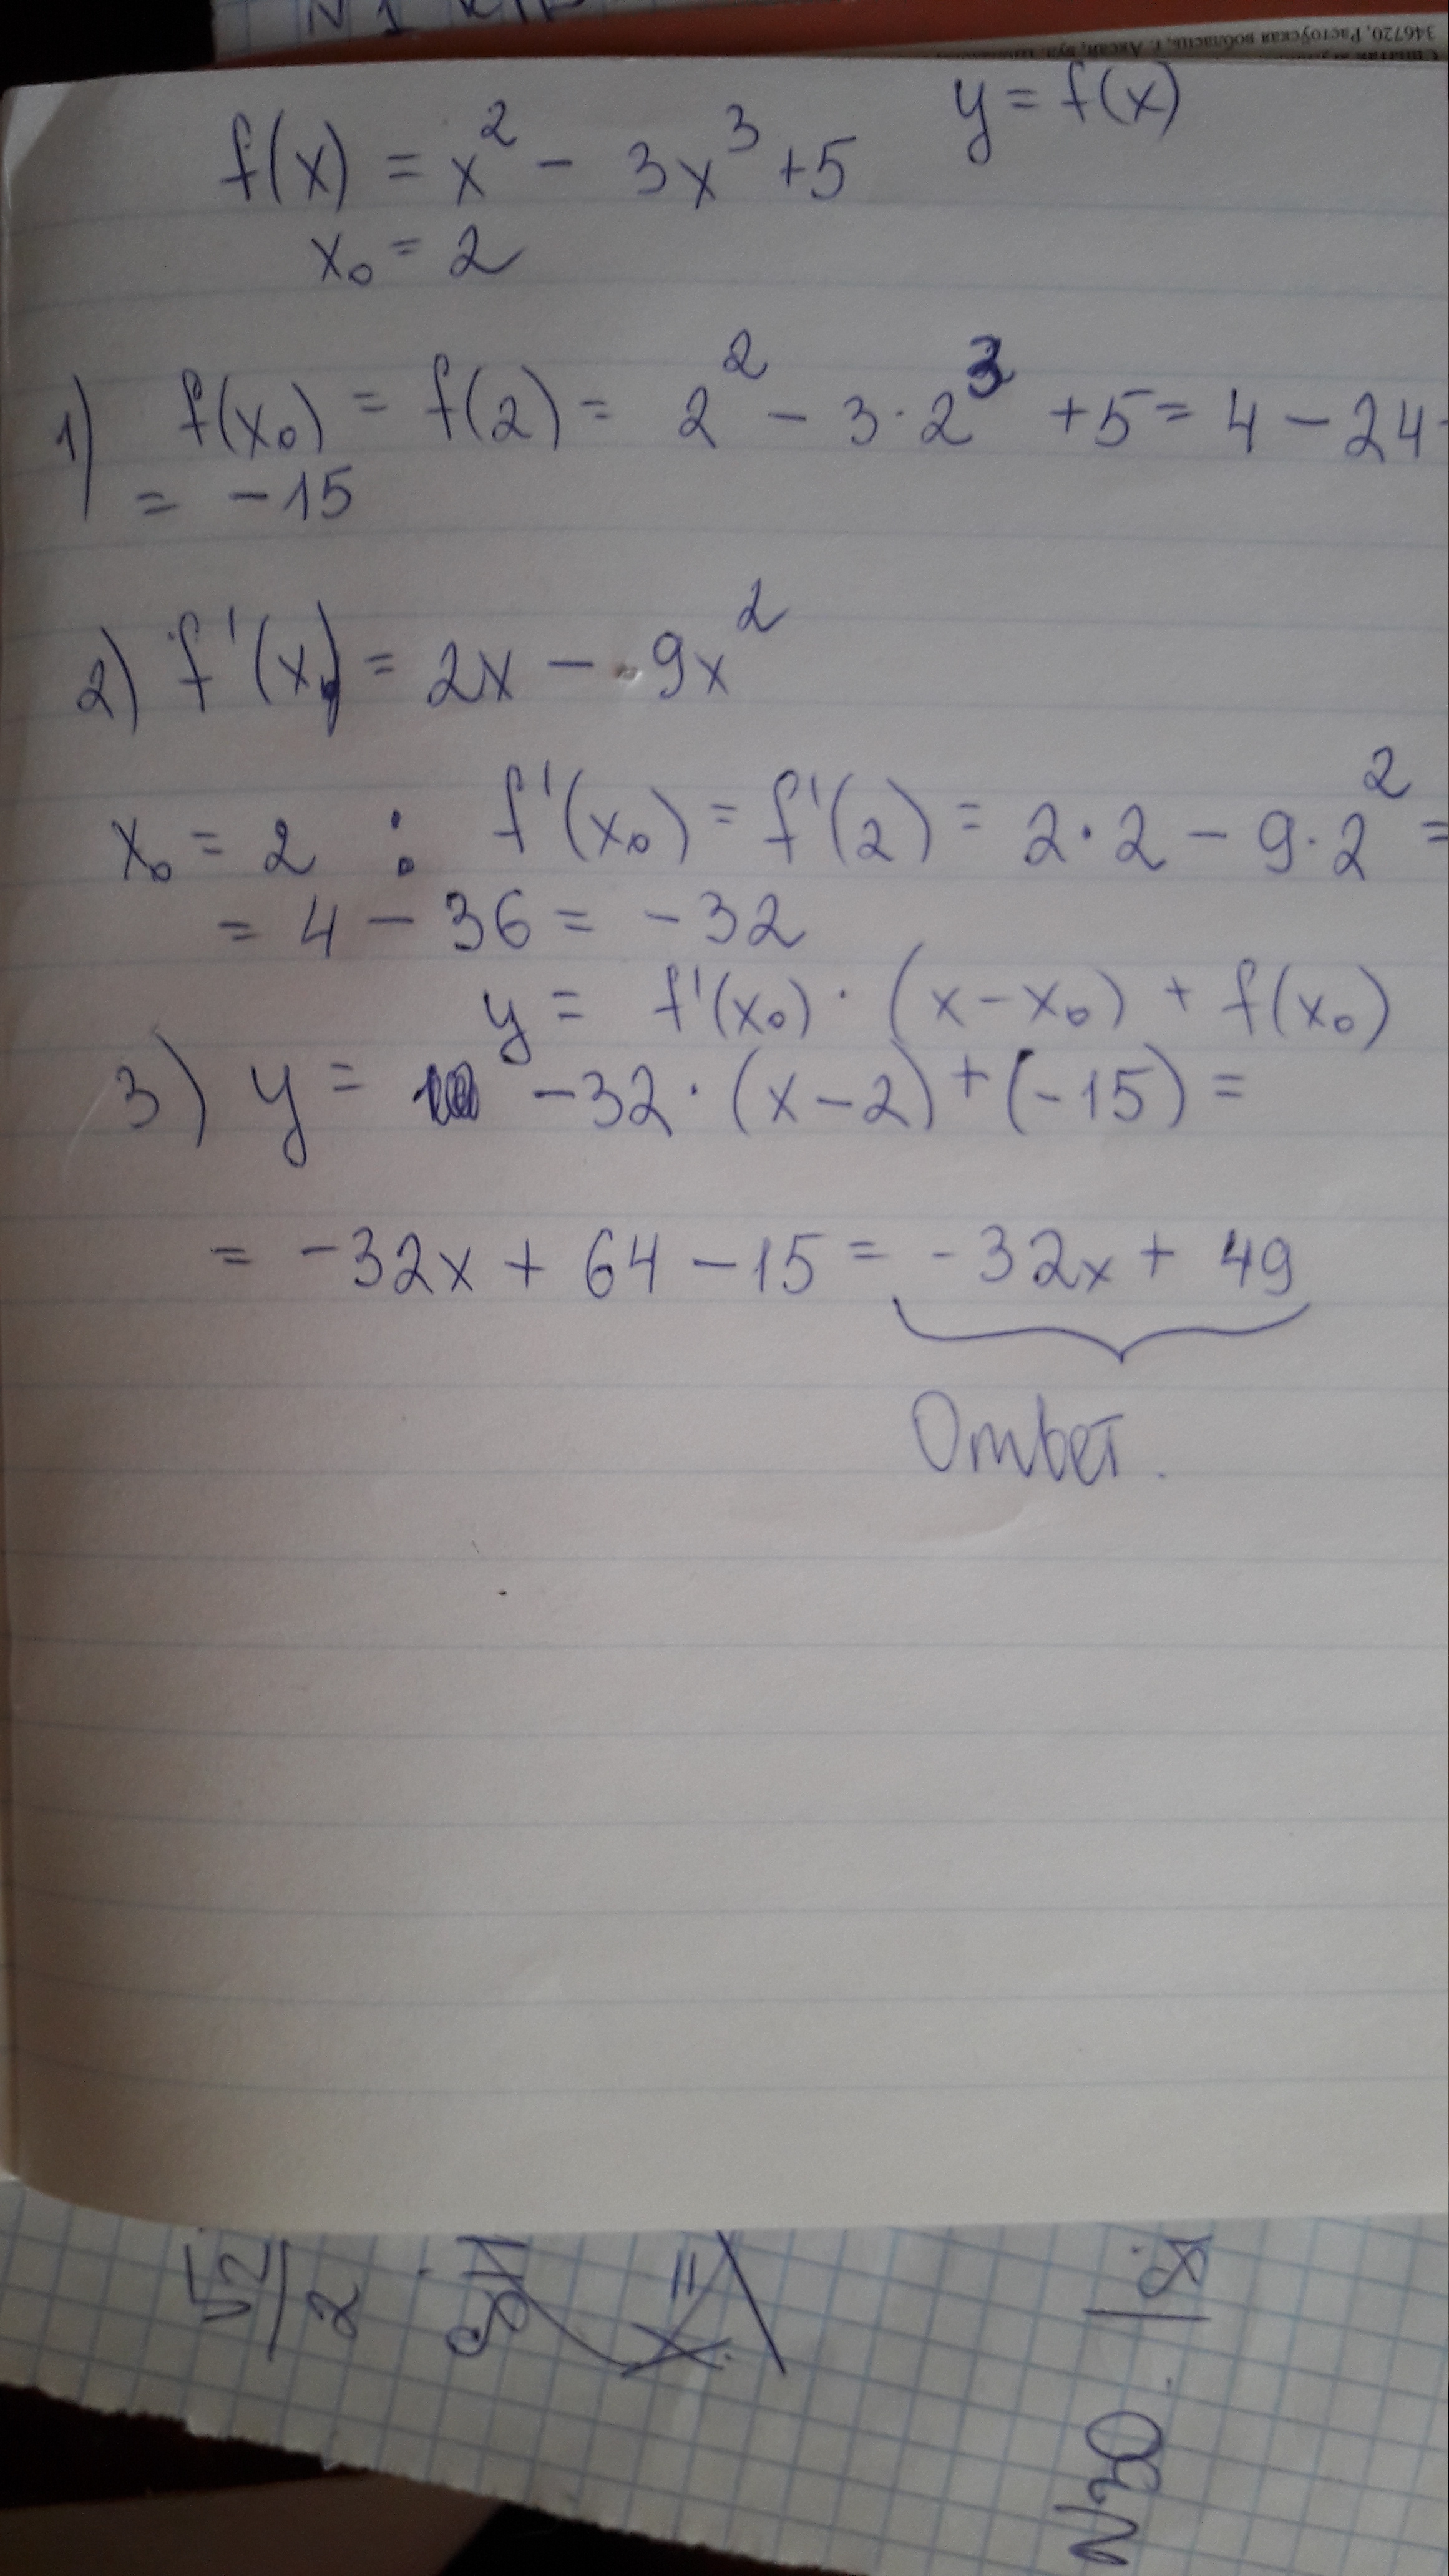 346720, Растоўская вобласць, г. Аксай, вул.
f(x) = x² - 3x³ + 5 y = f(x)
x₀ = 2
1) f(x₀) = f(2) = 2² - 3·2³ + 5 = 4 - 24
= -15
2) f'(x) = 2x - 9x²
x₀ = 2 : f'(x₀) = f'(2) = 2·2 - 9·2² =
= 4 - 36 = -32
y = f'(x₀) · (x - x₀) + f(x₀)
3) y = -32 · (x - 2) + (-15) =
= -32x + 64 - 15 = -32x + 49
Ответ.